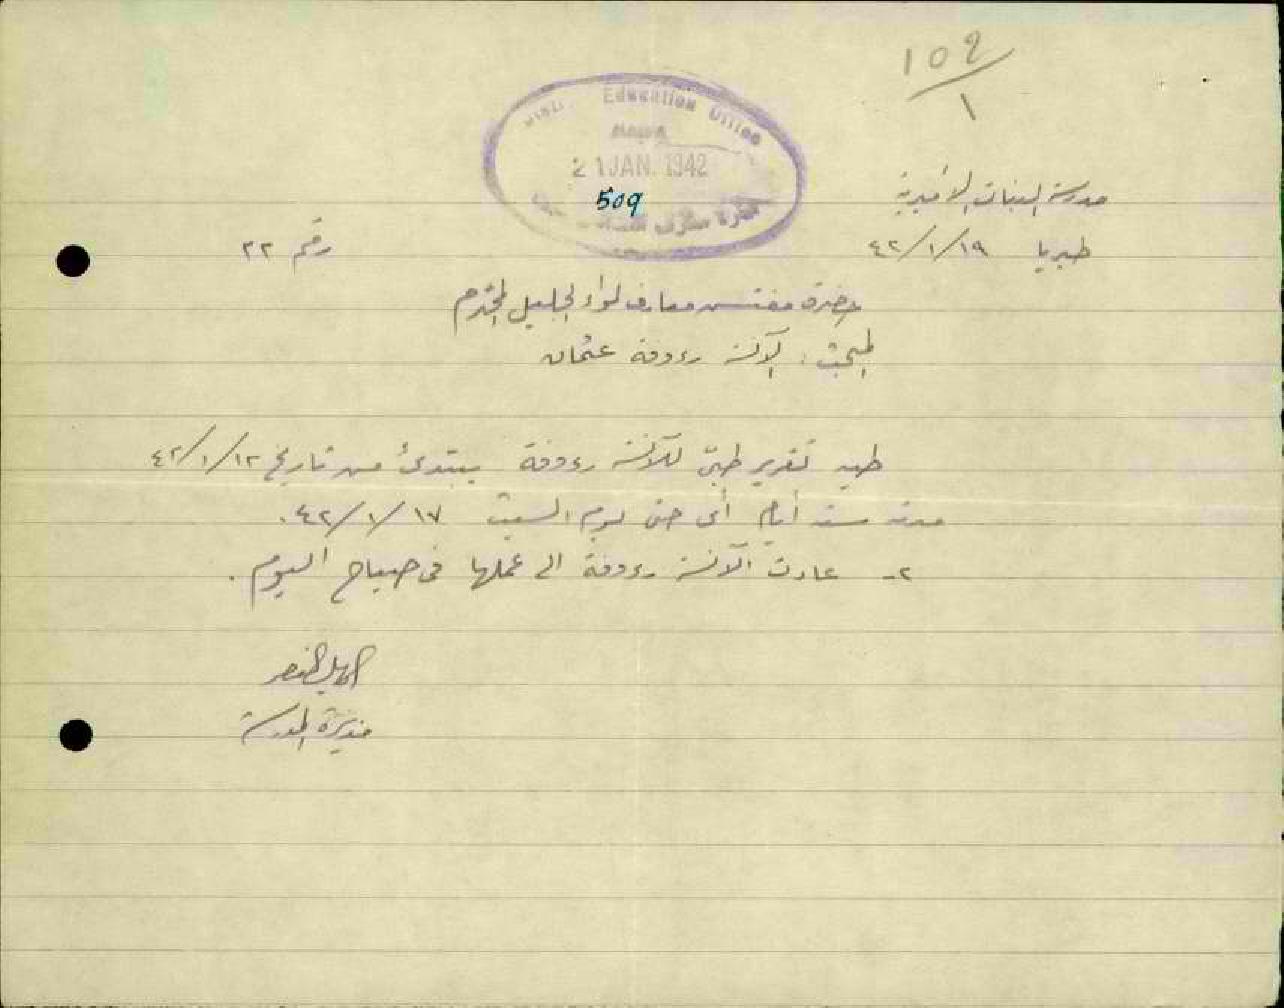 102
١
Education Office
21 JAN. 1942
509
مدرسة البنات الاميرية
طبريا ٤٢/١/١٩
رقم ٢٢
حضرة مفتش معارف لواء الجليل المحترم
المبحث : الآنسة رءوفة عثمان
طيه تقرير طبّي للآنسة رءوفة يبتدئ من تاريخ ٤٢/١/١٢
مدته ستة أيام أي حتى يوم السبت ٤٢/١/١٧.
٢- عادت الآنسة رءوفة الى عملها في صباح اليوم .
مديرة المدرسة